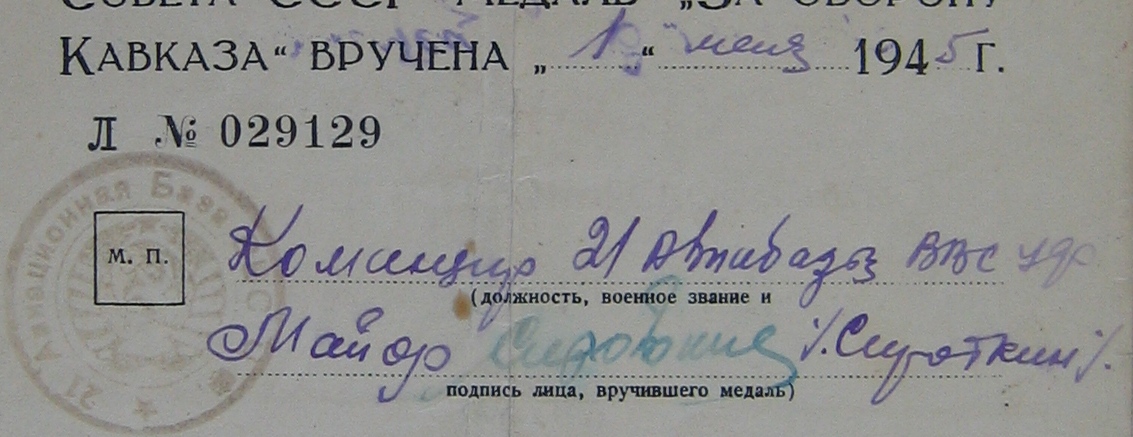 СОВЕТА СССР МЕДАЛЬ „ЗА ОБОРОНУ
КАВКАЗА“ ВРУЧЕНА „19“ 1945 Г.
Л № 029129
21 Авиационная База
М. П.
Командир 21 Авиабазы ВВС
(должность, военное звание и
Майор Сироткин /Сироткин/.
подпись лица, вручившего медаль)